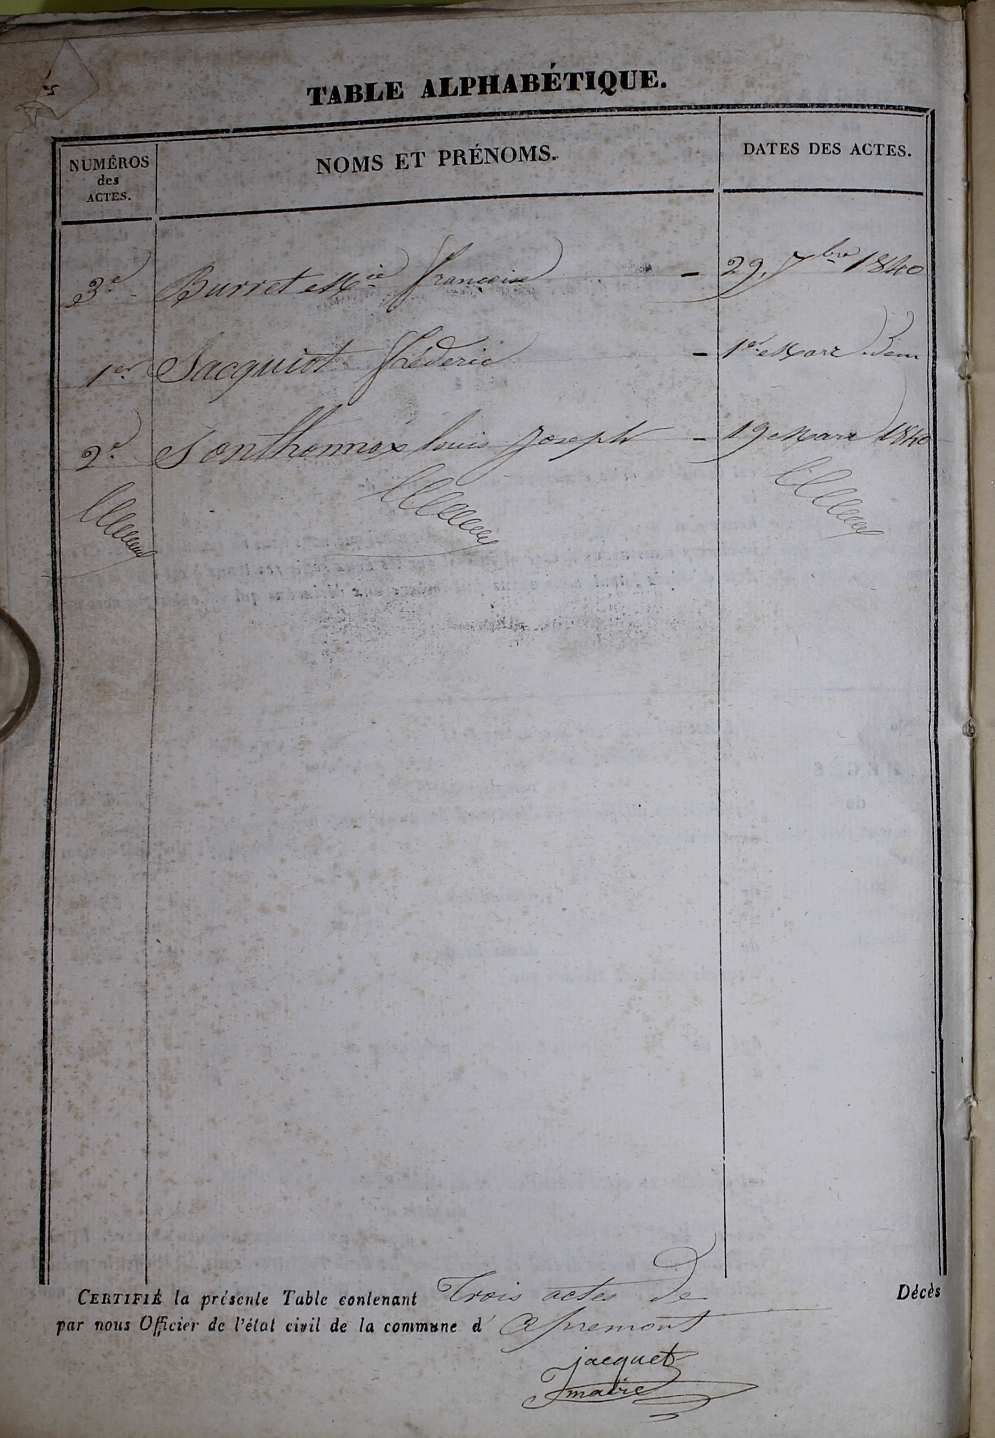 TABLE ALPHABÉTIQUE.
NUMÉROS des ACTES.
NOMS ET PRÉNOMS.
DATES DES ACTES.
3e Burret Mie François - 29. 7bre 1840
1er Jacquiot Fréderic - 1er Mars idem
2e Jonthomax louis Joseph - 19 Mars 1840
CERTIFIÉ la présente Table contenant Trois actes de Décès
par nous Officier de l'état civil de la commune d' apremont
jacquet
maire